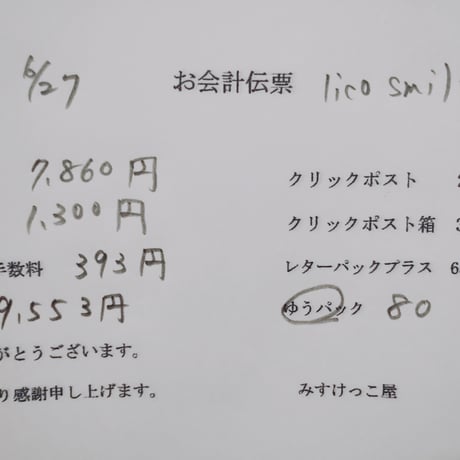 6/27 お会計伝票 lico smil
7,860円 クリックポスト
1,300円 クリックポスト箱 3
手数料 393円 レターパックプラス 6
9,553円 ゆうパック 80
がとうございます。
り感謝申し上げます。 みすけっこ屋